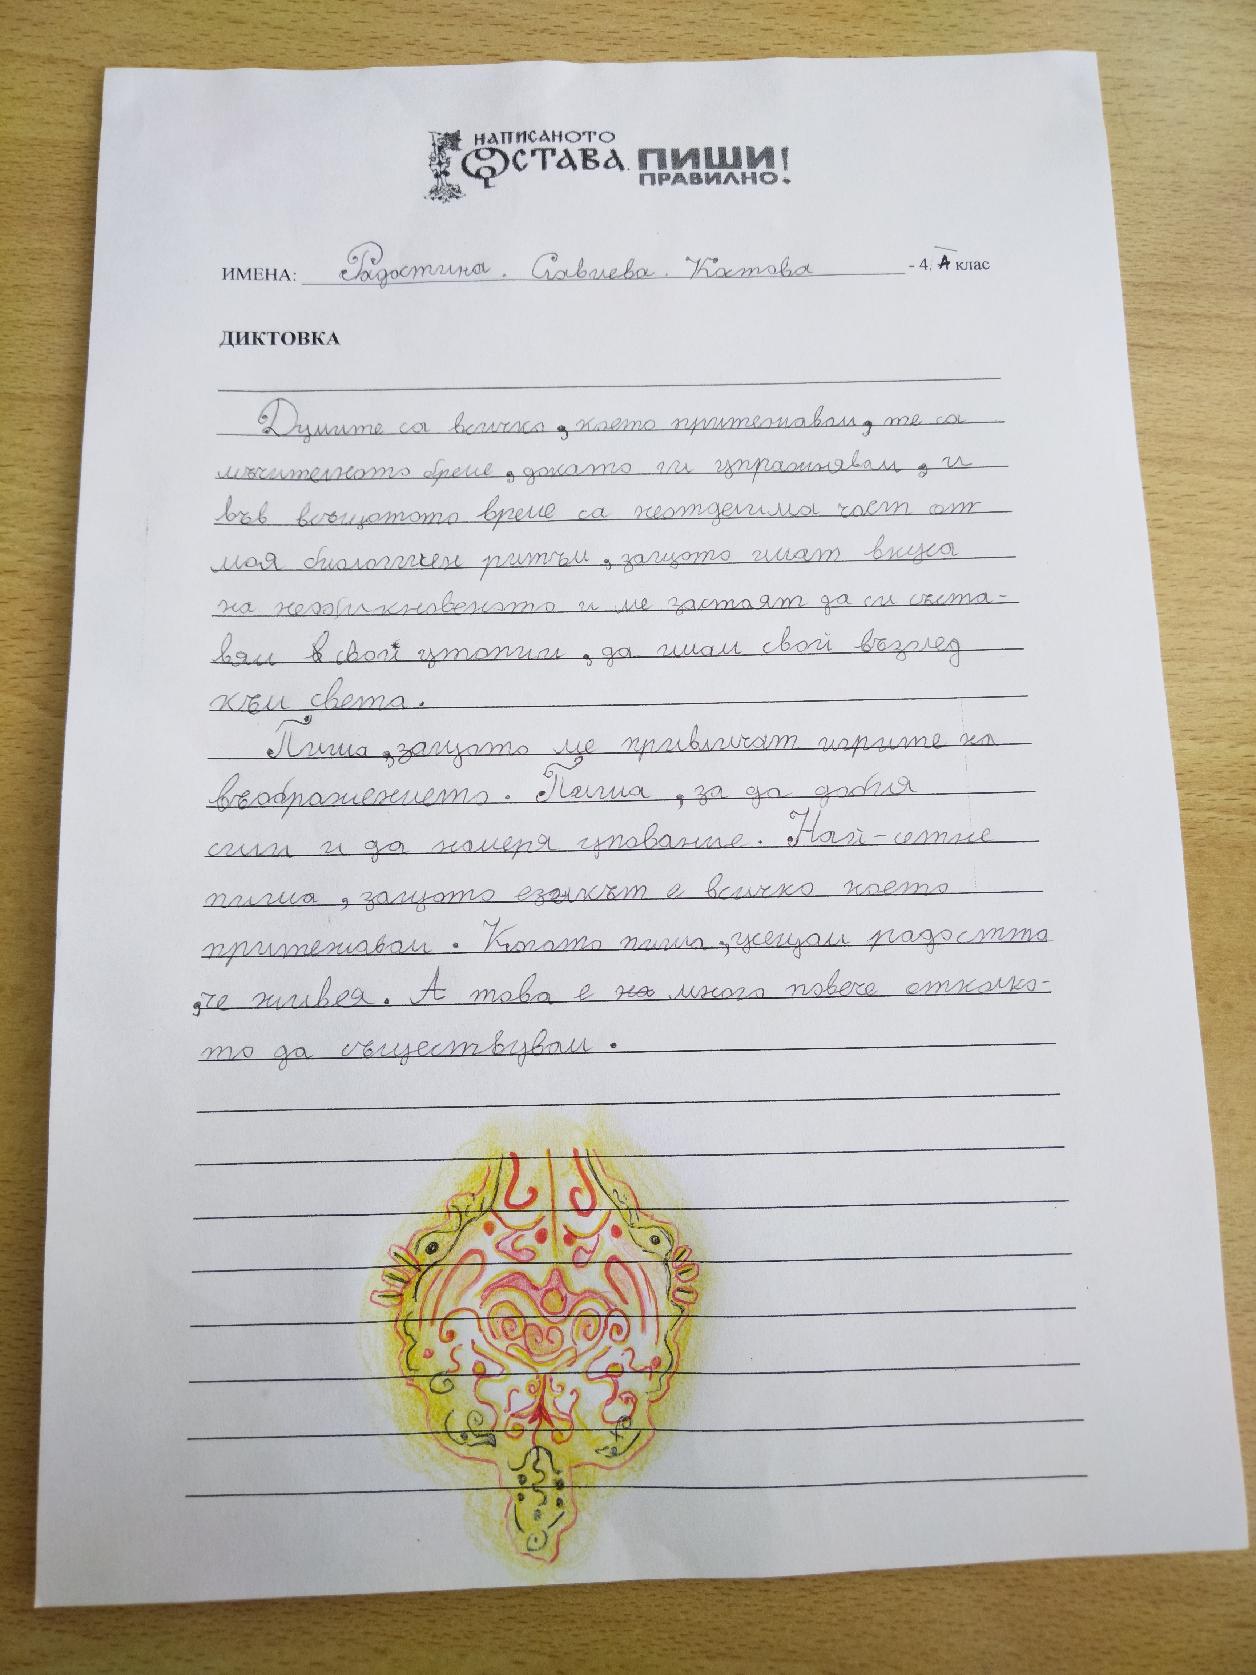 НАПИСАНОТО
ОСТАВА. ПИШИ!
ПРАВИЛНО!
ИМЕНА: Радостина. Славчева. Катова - 4. А клас
ДИКТОВКА
Думите са всичко, което притежавам, те са
мъчителното бреме, докато ги упражнявам, и
във всъщотото време са неотделима част от
моя биологичен ритъм, защото имат вкуса
на необикновеното и ме застаят да си съста-
вям свои утопии, да имам свой възглед
към света.
Пиша, защото ме привличат игрите на
въображението. Пиша, за да добия
сили и да намеря упование. Най-сетне
пиша, защото езикът е всичко което
притежавам. Когато пиша, усещам радостта
, че живея. А това е много повече отколко-
то да съществувам.